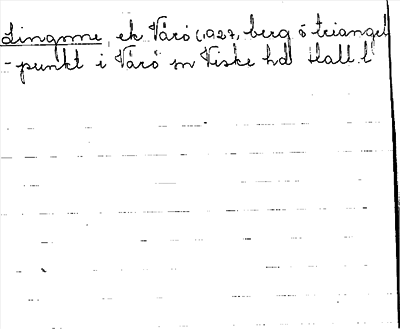 Lingome, ek Värö (1927, berg o triangel
-punkt i Värö sn Viske hd Hall. l